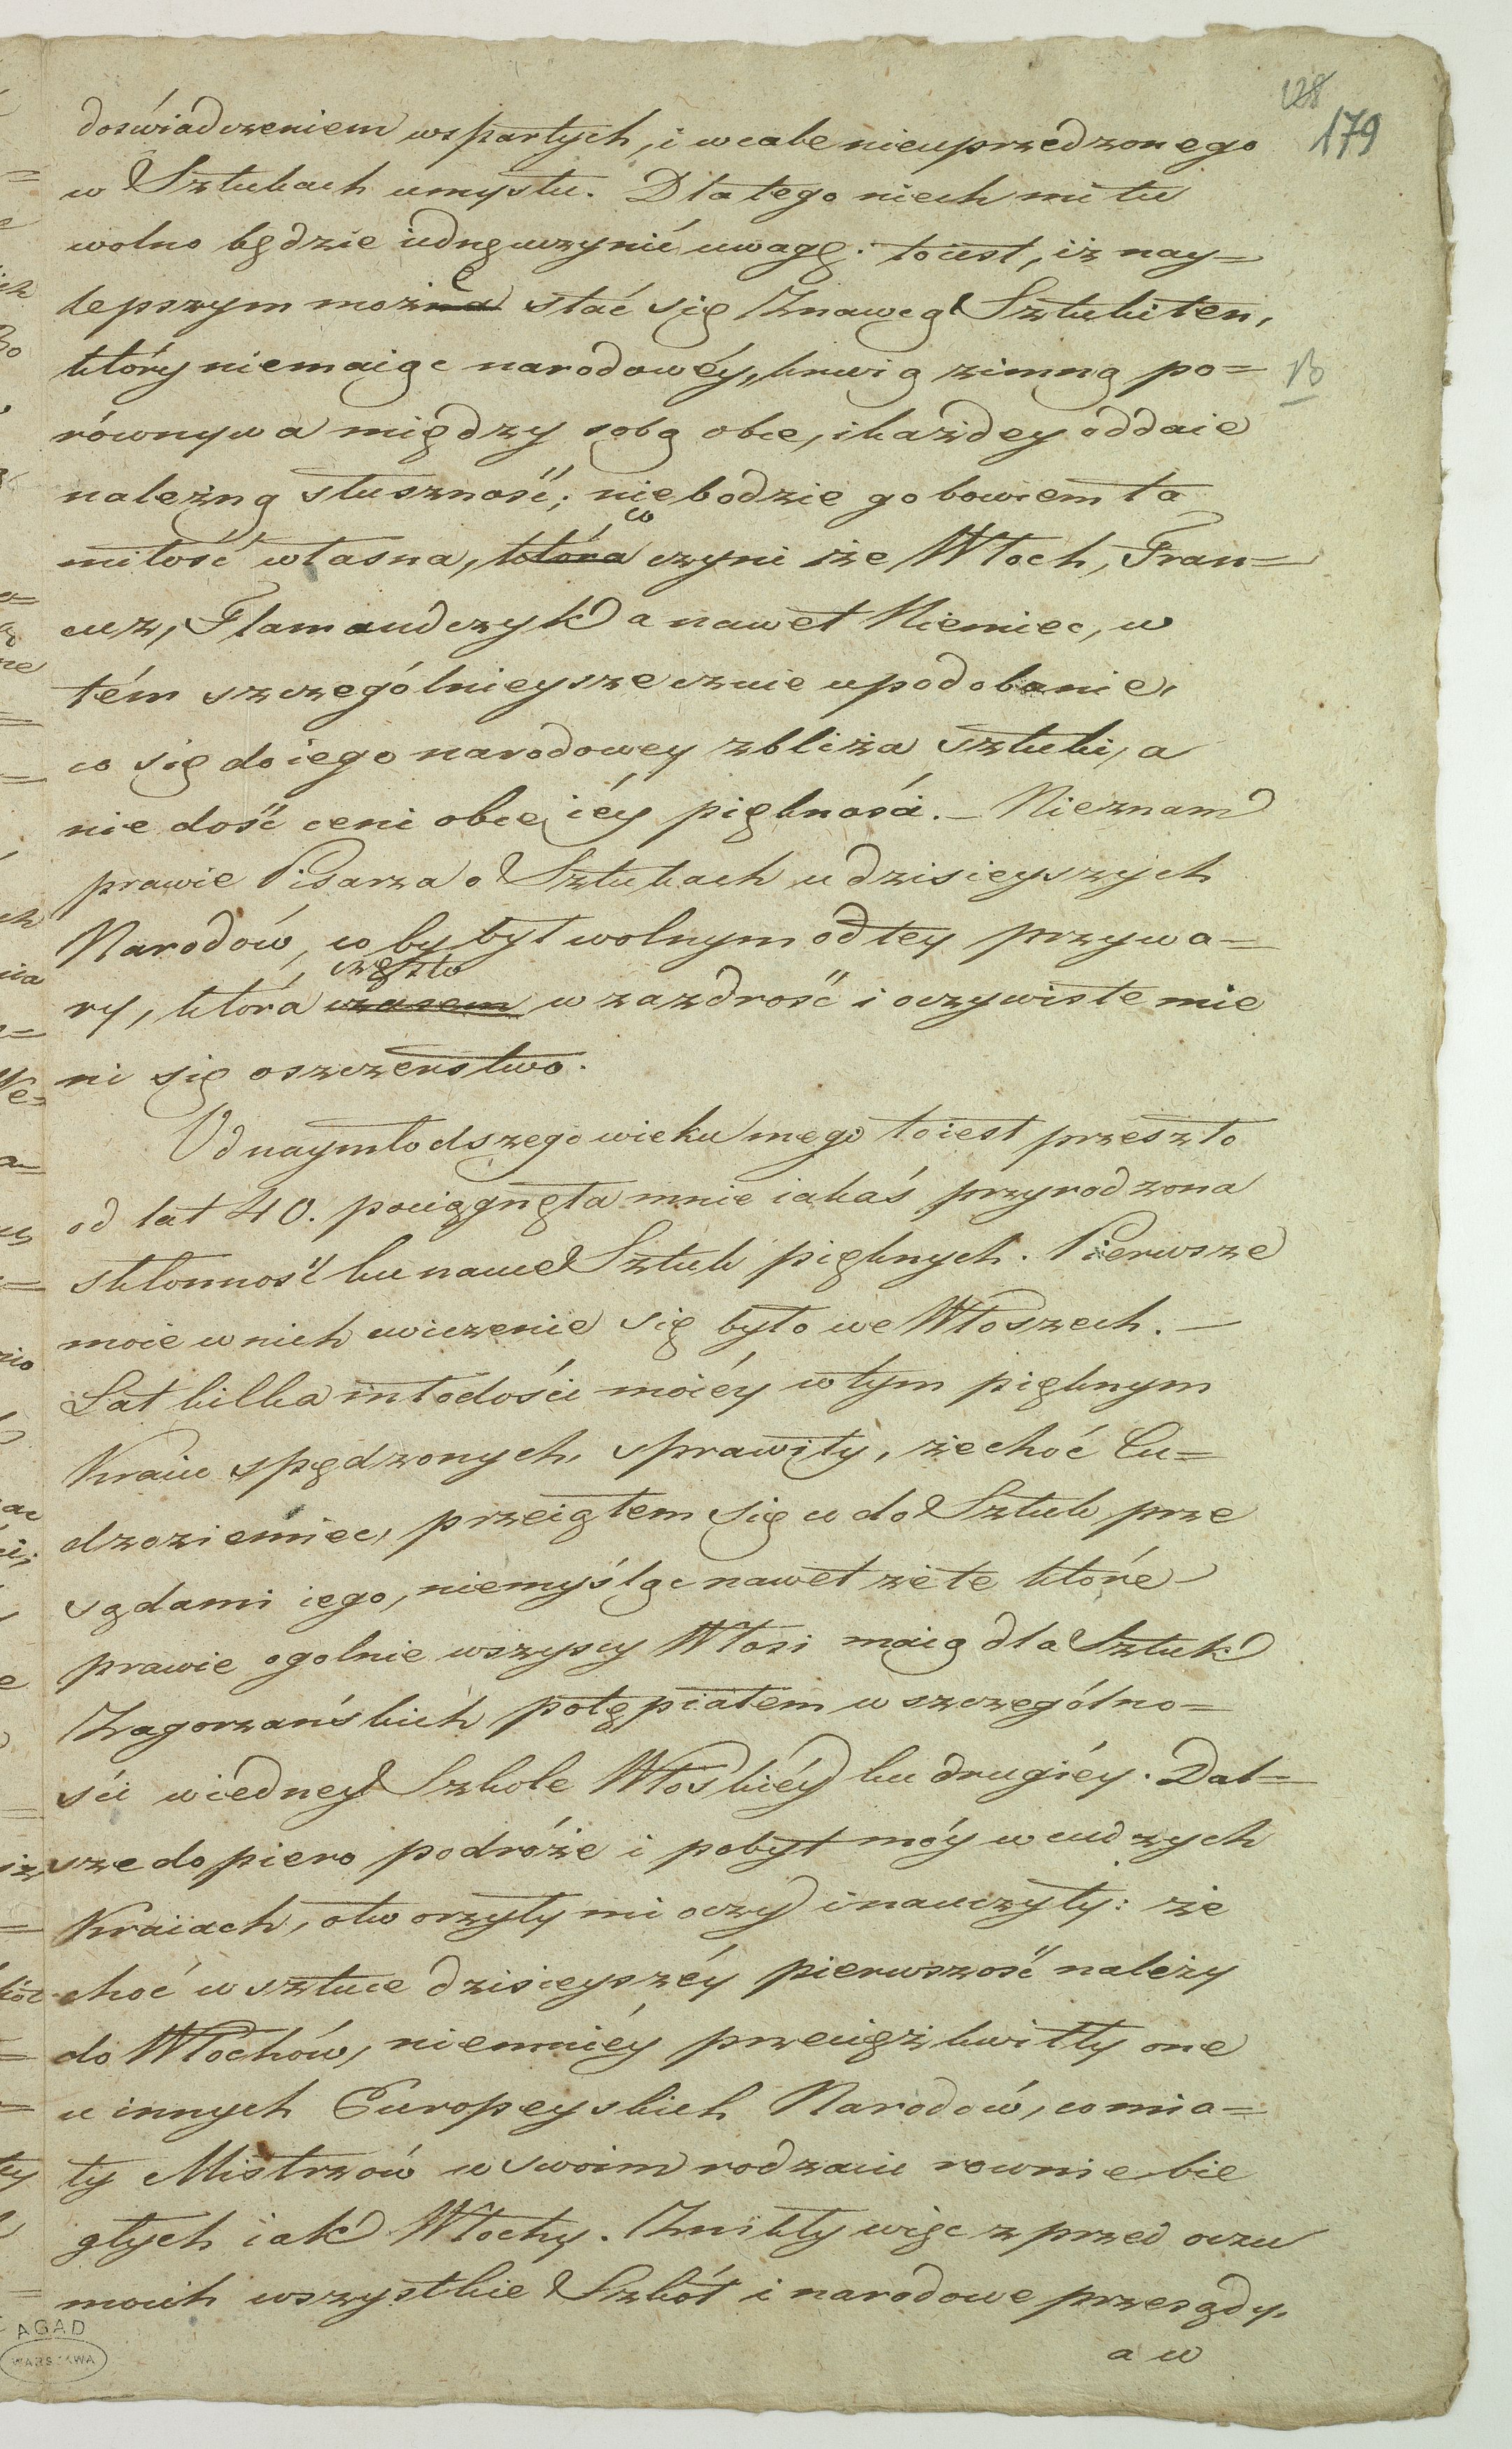 128
179
doświadczeniem wspartych, i wcale nieuprzedzonego
w Sztukach umysłu. Dla tego niech mi tu
wolno będzie iednę uczynić uwagę: to iest, iż nay=
lepszym może stać się Znawcą Sztuki ten,
który niemaiąc narodowéy, krwią zimną po=
równywa między sobą obce, i każdey oddaie
należną słuszność; nie bodzie go bowiem ta
miłość własna, która co czyni że Włoch, Fran=
cuz, Flamandczyk a nawet Niemiec, w
tém szczególnieysze czuie upodobanie,
co się do iego narodowey zbliża sztuki, a
nie dość ceni obcéy iéy piękności. – Nieznam
prawie Pisarza o Sztukach u dzisieyszych
Narodów, co by był wolnym od tey przywa=
ry, która czasem często w zazdrość i oczywiste mie
ni się oszczerstwo.
Od naymłodszego wieku mego to iest przeszło
od lat 40. pociągnęła mnie iakaś przyrodzona
skłonność ku nauce Sztuk pięknych. Pierwsze
moie w nich cwiczenie się było we Włoszech. –
Lat kilka młodości moiéy w tym pięknym
Kraiu spędzonych, sprawiły, że choć Cu=
dzoziemiec, przeiąłem się co do Sztuk prze
sądami iego, niemyśląc nawet że te które
prawie ogolnie wszyscy Włosi maią dla Sztuk
Zagorzańskich potępiałem w szczególno=
ści w iedney Szkole Włoskiéy ku drugiéy. Dal=
sze dopiero podróże i pobyt móy w cudzych
Kraiach, otworzyły mi oczy i nauczyły: że
choć w sztuce dzisieyszéy pierwszość należy
do Włochów, niemniéy przecięż kwitły one
u innych Europeyskich Narodów, co mia=
ły Mistrzów w swoim rodzaiu rownie bie
głych iak Włochy. Znikły więc z przed oczu
moich wszystkie Szkół i narodowe przesądy,
a w
AGAD
WARSZAWA